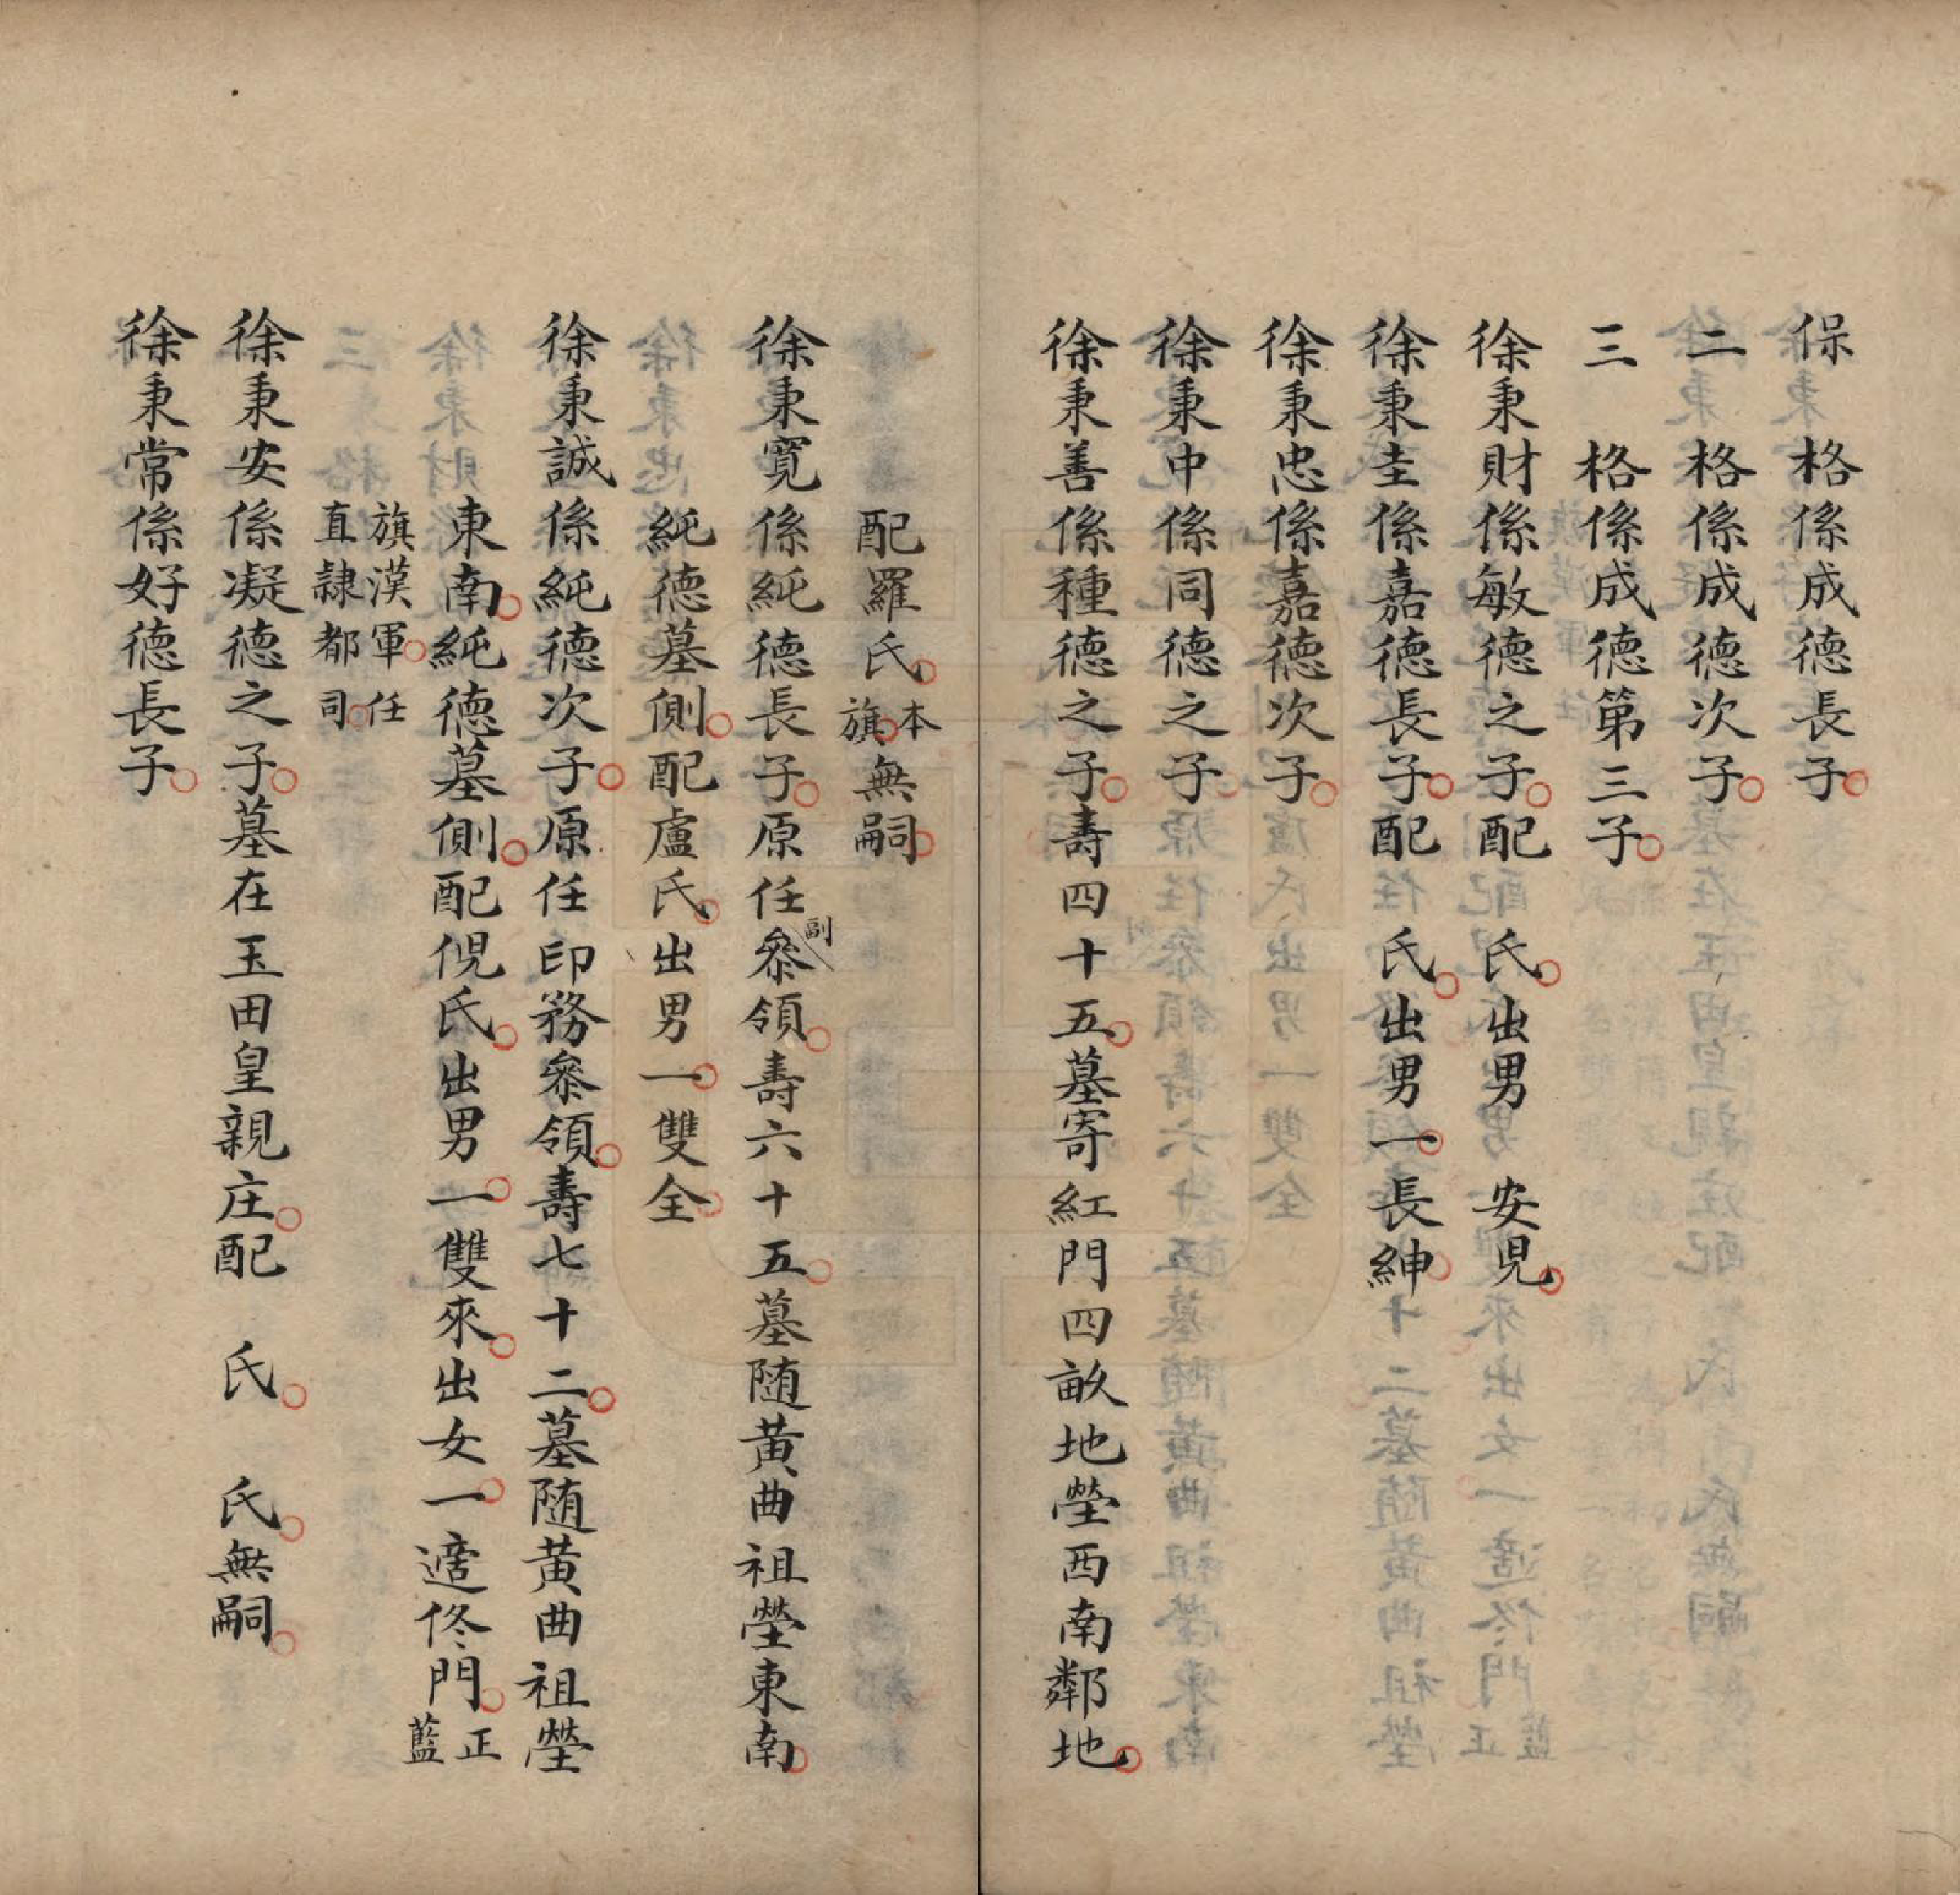 保　格係成德長子
二　格係成德次子
三　格係成德第三子
徐秉財係敏德之子配　氏出男　安児
徐秉圭係嘉德長子配　氏出男一長紳
徐秉忠係嘉德次子
徐秉中係同德之子
徐秉善係種德之子壽四十五墓寄紅門四畝地塋西南鄰地
配羅氏本旗無嗣
徐秉寬係純德長子原任叅副領壽六十五墓随黃曲祖塋東南
純德墓側配盧氏出男一雙全
徐秉誠係純德次子原任印務叅領壽七十二墓随黃曲祖塋
東南純德墓側配倪氏出男一雙來出女一適佟門正藍
旗漢軍任直隸都司
徐秉安係凝德之子墓在玉田皇親庄配　氏　氏無嗣
徐秉常係好德長子